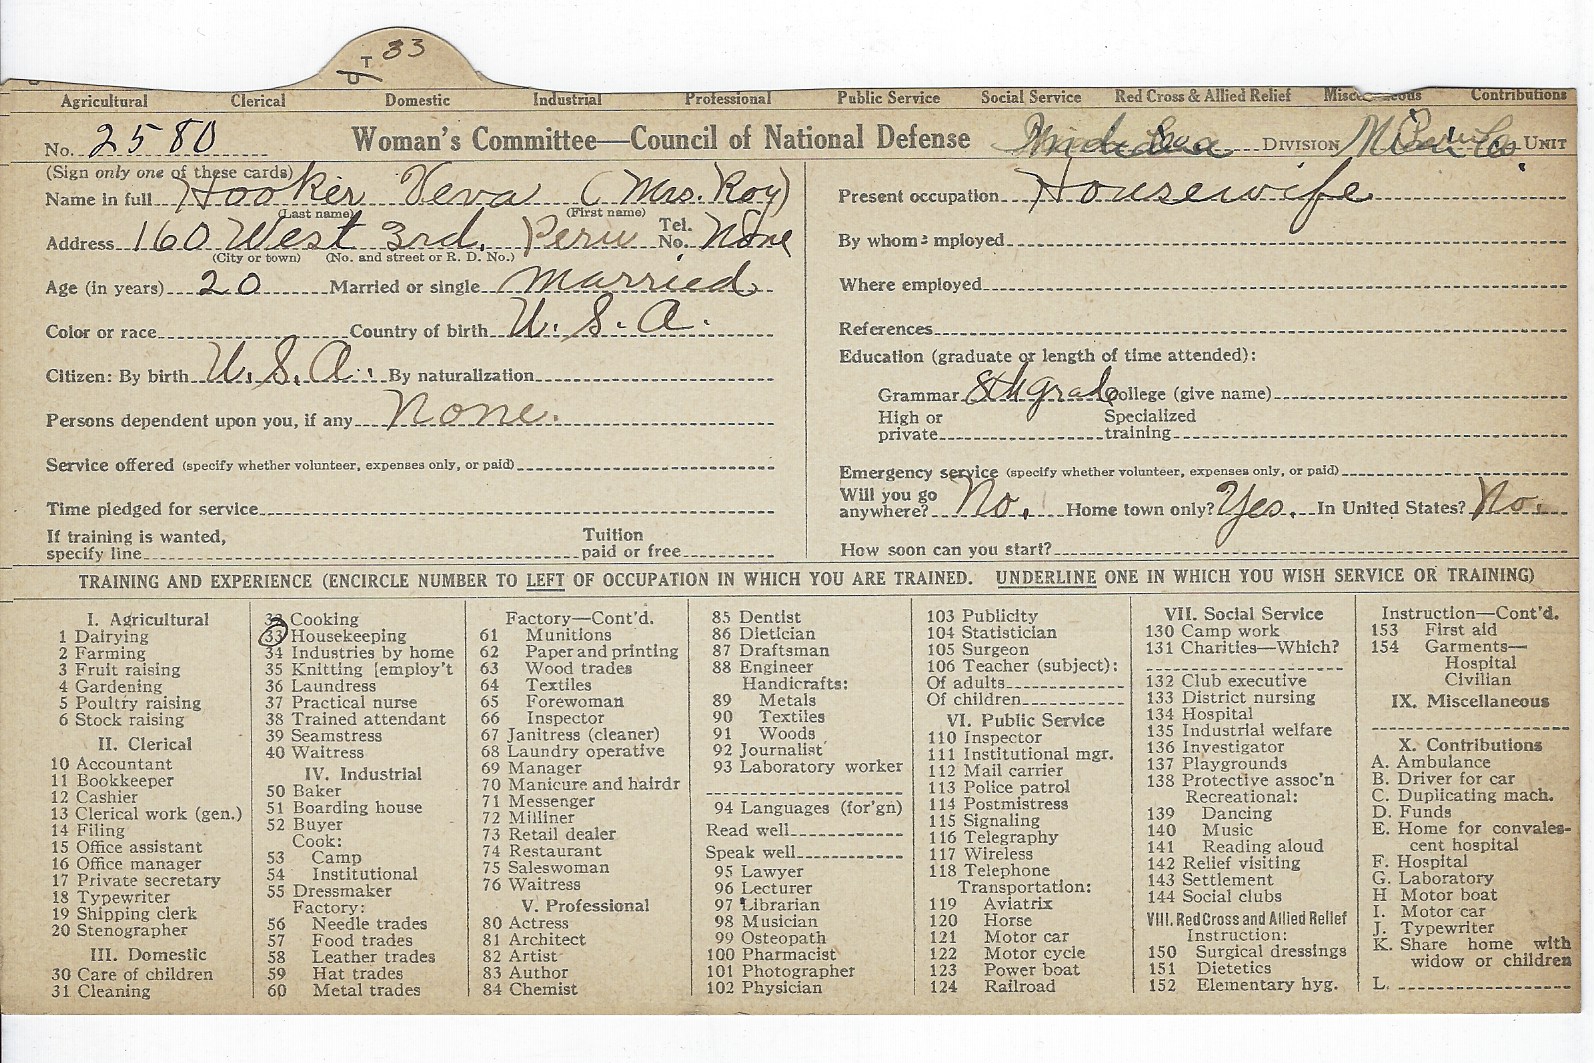 T 33
Agricultural Clerical Domestic Industrial Professional Public Service Social Service Red Cross & Allied Relief Contributions
No. 2580 Woman's Committee—Council of National Defense DIVISION UNIT
(Sign only one of these cards)
Name in full Hooker Veva (Mrs. Roy)
(Last name) (First name)
Address 160 West 3rd. Peru Tel. No. None
(City or town) (No. and street or R. D. No.)
Age (in years) 20 Married or single Married
Color or race Country of birth U. S. A.
Citizen: By birth U. S. A. By naturalization
Persons dependent upon you, if any None.
Service offered (specify whether volunteer, expenses only, or paid)
Time pledged for service
If training is wanted, Tuition
specify line paid or free
Present occupation Housewife
By whom mployed
Where employed
References
Education (graduate or length of time attended):
Grammar 8th grade College (give name)
High or Specialized
private training
Emergency service (specify whether volunteer, expenses only, or paid)
Will you go
anywhere? No. Home town only? Yes. In United States? No.
How soon can you start?
TRAINING AND EXPERIENCE (ENCIRCLE NUMBER TO LEFT OF OCCUPATION IN WHICH YOU ARE TRAINED. UNDERLINE ONE IN WHICH YOU WISH SERVICE OR TRAINING)
I. Agricultural
1 Dairying
2 Farming
3 Fruit raising
4 Gardening
5 Poultry raising
6 Stock raising
II. Clerical
10 Accountant
11 Bookkeeper
12 Cashier
13 Clerical work (gen.)
14 Filing
15 Office assistant
16 Office manager
17 Private secretary
18 Typewriter
19 Shipping clerk
20 Stenographer
III. Domestic
30 Care of children
31 Cleaning
32 Cooking
33 Housekeeping
34 Industries by home
35 Knitting [employ't
36 Laundress
37 Practical nurse
38 Trained attendant
39 Seamstress
40 Waitress
IV. Industrial
50 Baker
51 Boarding house
52 Buyer
Cook:
53 Camp
54 Institutional
55 Dressmaker
Factory:
56 Needle trades
57 Food trades
58 Leather trades
59 Hat trades
60 Metal trades
Factory—Cont'd.
61 Munitions
62 Paper and printing
63 Wood trades
64 Textiles
65 Forewoman
66 Inspector
67 Janitress (cleaner)
68 Laundry operative
69 Manager
70 Manicure and hairdr
71 Messenger
72 Milliner
73 Retail dealer
74 Restaurant
75 Saleswoman
76 Waitress
V. Professional
80 Actress
81 Architect
82 Artist
83 Author
84 Chemist
85 Dentist
86 Dietician
87 Draftsman
88 Engineer
Handicrafts:
89 Metals
90 Textiles
91 Woods
92 Journalist
93 Laboratory worker
94 Languages (for'gn)
Read well
Speak well
95 Lawyer
96 Lecturer
97 Librarian
98 Musician
99 Osteopath
100 Pharmacist
101 Photographer
102 Physician
103 Publicity
104 Statistician
105 Surgeon
106 Teacher (subject):
Of adults
Of children
VI. Public Service
110 Inspector
111 Institutional mgr.
112 Mail carrier
113 Police patrol
114 Postmistress
115 Signaling
116 Telegraphy
117 Wireless
118 Telephone
Transportation:
119 Aviatrix
120 Horse
121 Motor car
122 Motor cycle
123 Power boat
124 Railroad
VII. Social Service
130 Camp work
131 Charities—Which?
132 Club executive
133 District nursing
134 Hospital
135 Industrial welfare
136 Investigator
137 Playgrounds
138 Protective assoc'n
Recreational:
139 Dancing
140 Music
141 Reading aloud
142 Relief visiting
143 Settlement
144 Social clubs
VIII. Red Cross and Allied Relief
Instruction:
150 Surgical dressings
151 Dietetics
152 Elementary hyg.
Instruction—Cont'd.
153 First aid
154 Garments—
Hospital
Civilian
IX. Miscellaneous
X. Contributions
A. Ambulance
B. Driver for car
C. Duplicating mach.
D. Funds
E. Home for convales-
cent hospital
F. Hospital
G. Laboratory
H Motor boat
I. Motor car
J. Typewriter
K. Share home with
widow or children
L.